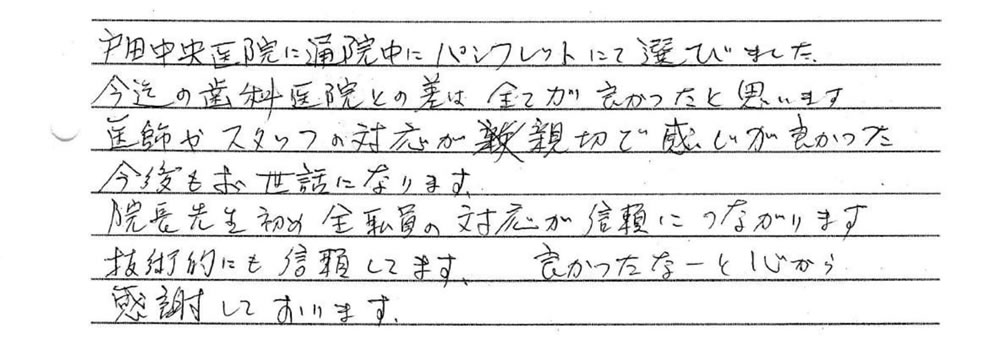 戸田中央医院に通院中にパンフレットにて選びました.
今迄の歯科医院との差は全てが良かったと思います
医師やスタッフの対応が親切で感じが良かった
今後もお世話になります。
院長先生初め全職員の対応が信頼につながります
技術的にも信頼してます、 良かったなーと心から
感謝しております.